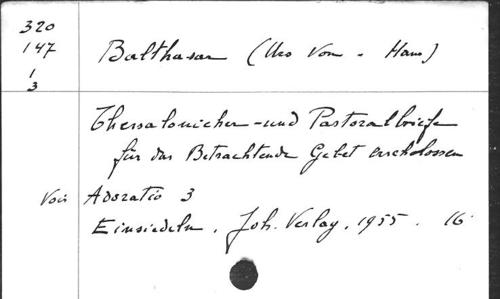 320
147
1
3
Balthasar (Urs von - Hans)
Thessalonicher-und Pastoralbriefe
für das Betrachtende Gebet erschlossen
Voir Adoratio 3
Einsiedeln, Joh. Verlag, 1955. 16